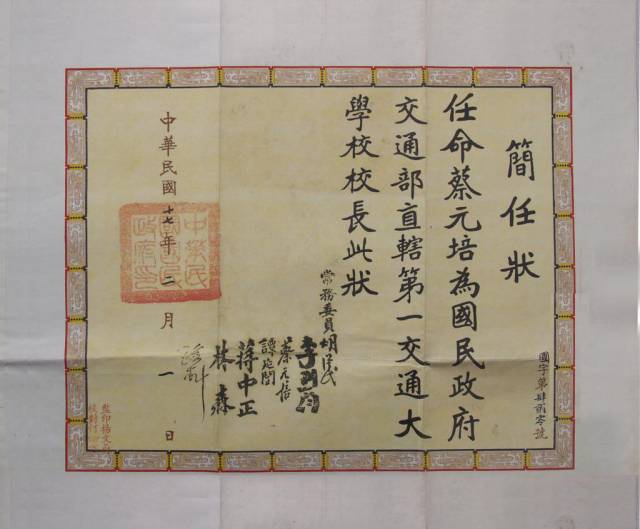 簡任狀
任命蔡元培為國民政府
交通部直轄第一交通大
學校校長此狀
常務委員胡漢民
李烈鈞
蔡元培
譚延闓
蔣中正
林森
中華民國十七年二月一日
中華民國國民政府印
國字第肆貳零號